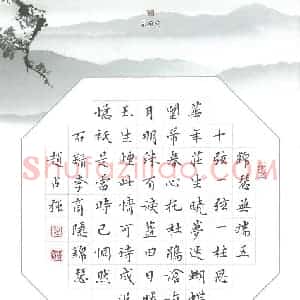 錦瑟無端五
十弦一弦一柱思
華年莊生曉夢迷蝴
望帝春心托杜鵑滄
月明珠有淚藍田日
玉生煙此情可待成
憶祇是當時已惘然
右錄李商隱錦瑟
趙占
Shufaziliao.com